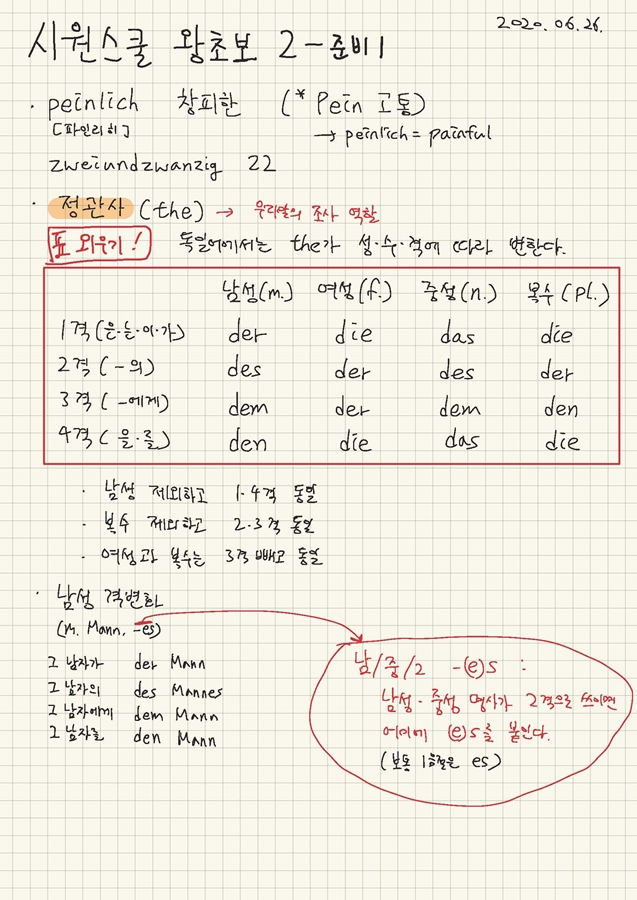 2020.06.26.
시원스쿨 왕초보 2-준비1
· peinlich 창피한 (* Pein 고통)
[파인리히] → peinlich = painful
zweiundzwanzig 22
· 정관사 (the) → 우리말의 조사 역할
표 외우기! 독일어에서는 the가 성·수·격에 따라 변한다.
남성(m.) 여성(f.) 중성(n.) 복수(pl.)
1격(은·는·이·가) der die das die
2격(-의) des der des der
3격(-에게) dem der dem den
4격(을·를) den die das die
· 남성 제외하고 1·4격 동일
· 복수 제외하고 2·3격 동일
· 여성과 복수는 3격 빼고 동일
· 남성 격변화
(m. Mann, -es)
그 남자가 der Mann
그 남자의 des Mannes
그 남자에게 dem Mann
그 남자를 den Mann
남/중/2 -(e)s :
남성·중성 명사가 2격으로 쓰이면
어미에 (e)s를 붙인다.
(보통 1음절은 es)